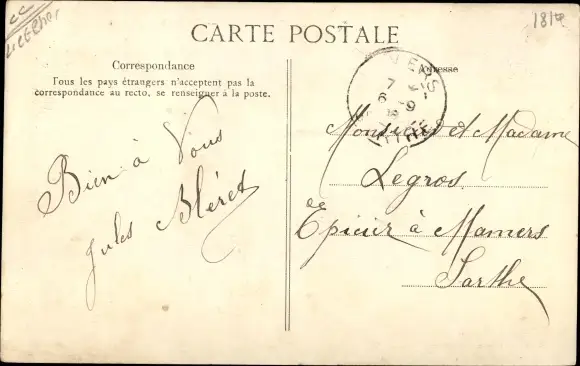 CARTE POSTALE
Correspondance
Tous les pays étrangers n'acceptent pas la
correspondance au recto, se renseigner à la poste.
Adresse
Bien à Vous
Jules Bléret
Monsieur et Madame
Legros
Epicier à Mamers
Sarthe